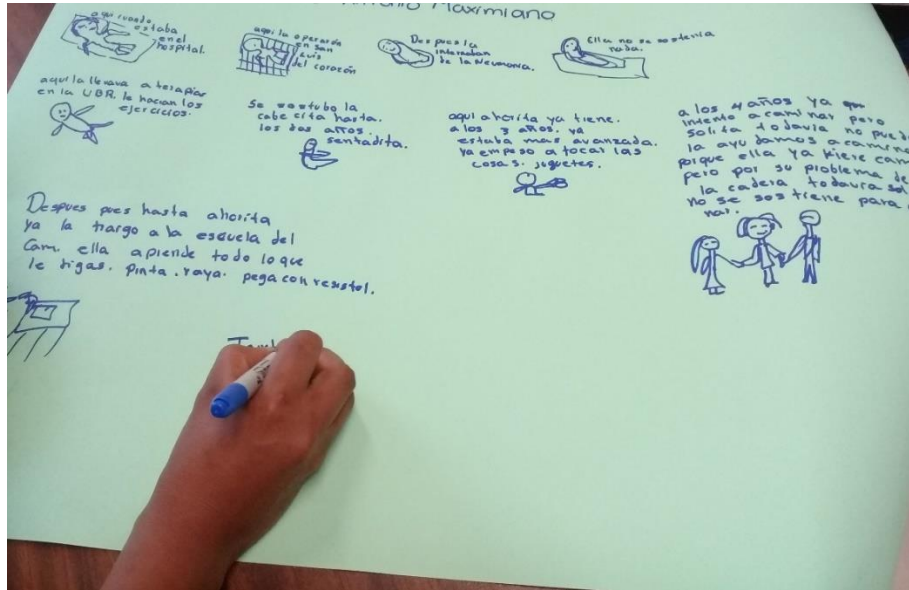 Antonio Maximiano
aqui cuando
estaba
en el
hospital.
aqui la operaron
en san
Luis
del corazón
Des pues la
internaban
de la Neumonia.
Ella no se sostenia
nada.
aqui la llevava a terapias
en la UBR. le hacian los
ejercicios.
Se sostubo la
cabe cita hasta.
los dos años.
sentadita.
aqui ahorita ya tiene.
a los 3 años. ya
estaba mas avanzada.
ya empeso a tocar las
cosas. juguetes.
a los 4 años ya
intento a caminar pero
solita todavia no puede
la ayudamos a camina
porque ella ya kiere cam
pero por su problema de
la cadera todavia sol
no se sos tiene para
nar.
Despues pues hasta ahorita
ya la traigo a la escuela del
Cam. ella aprende todo lo que
le digas. pinta. raya. pega con resistol.